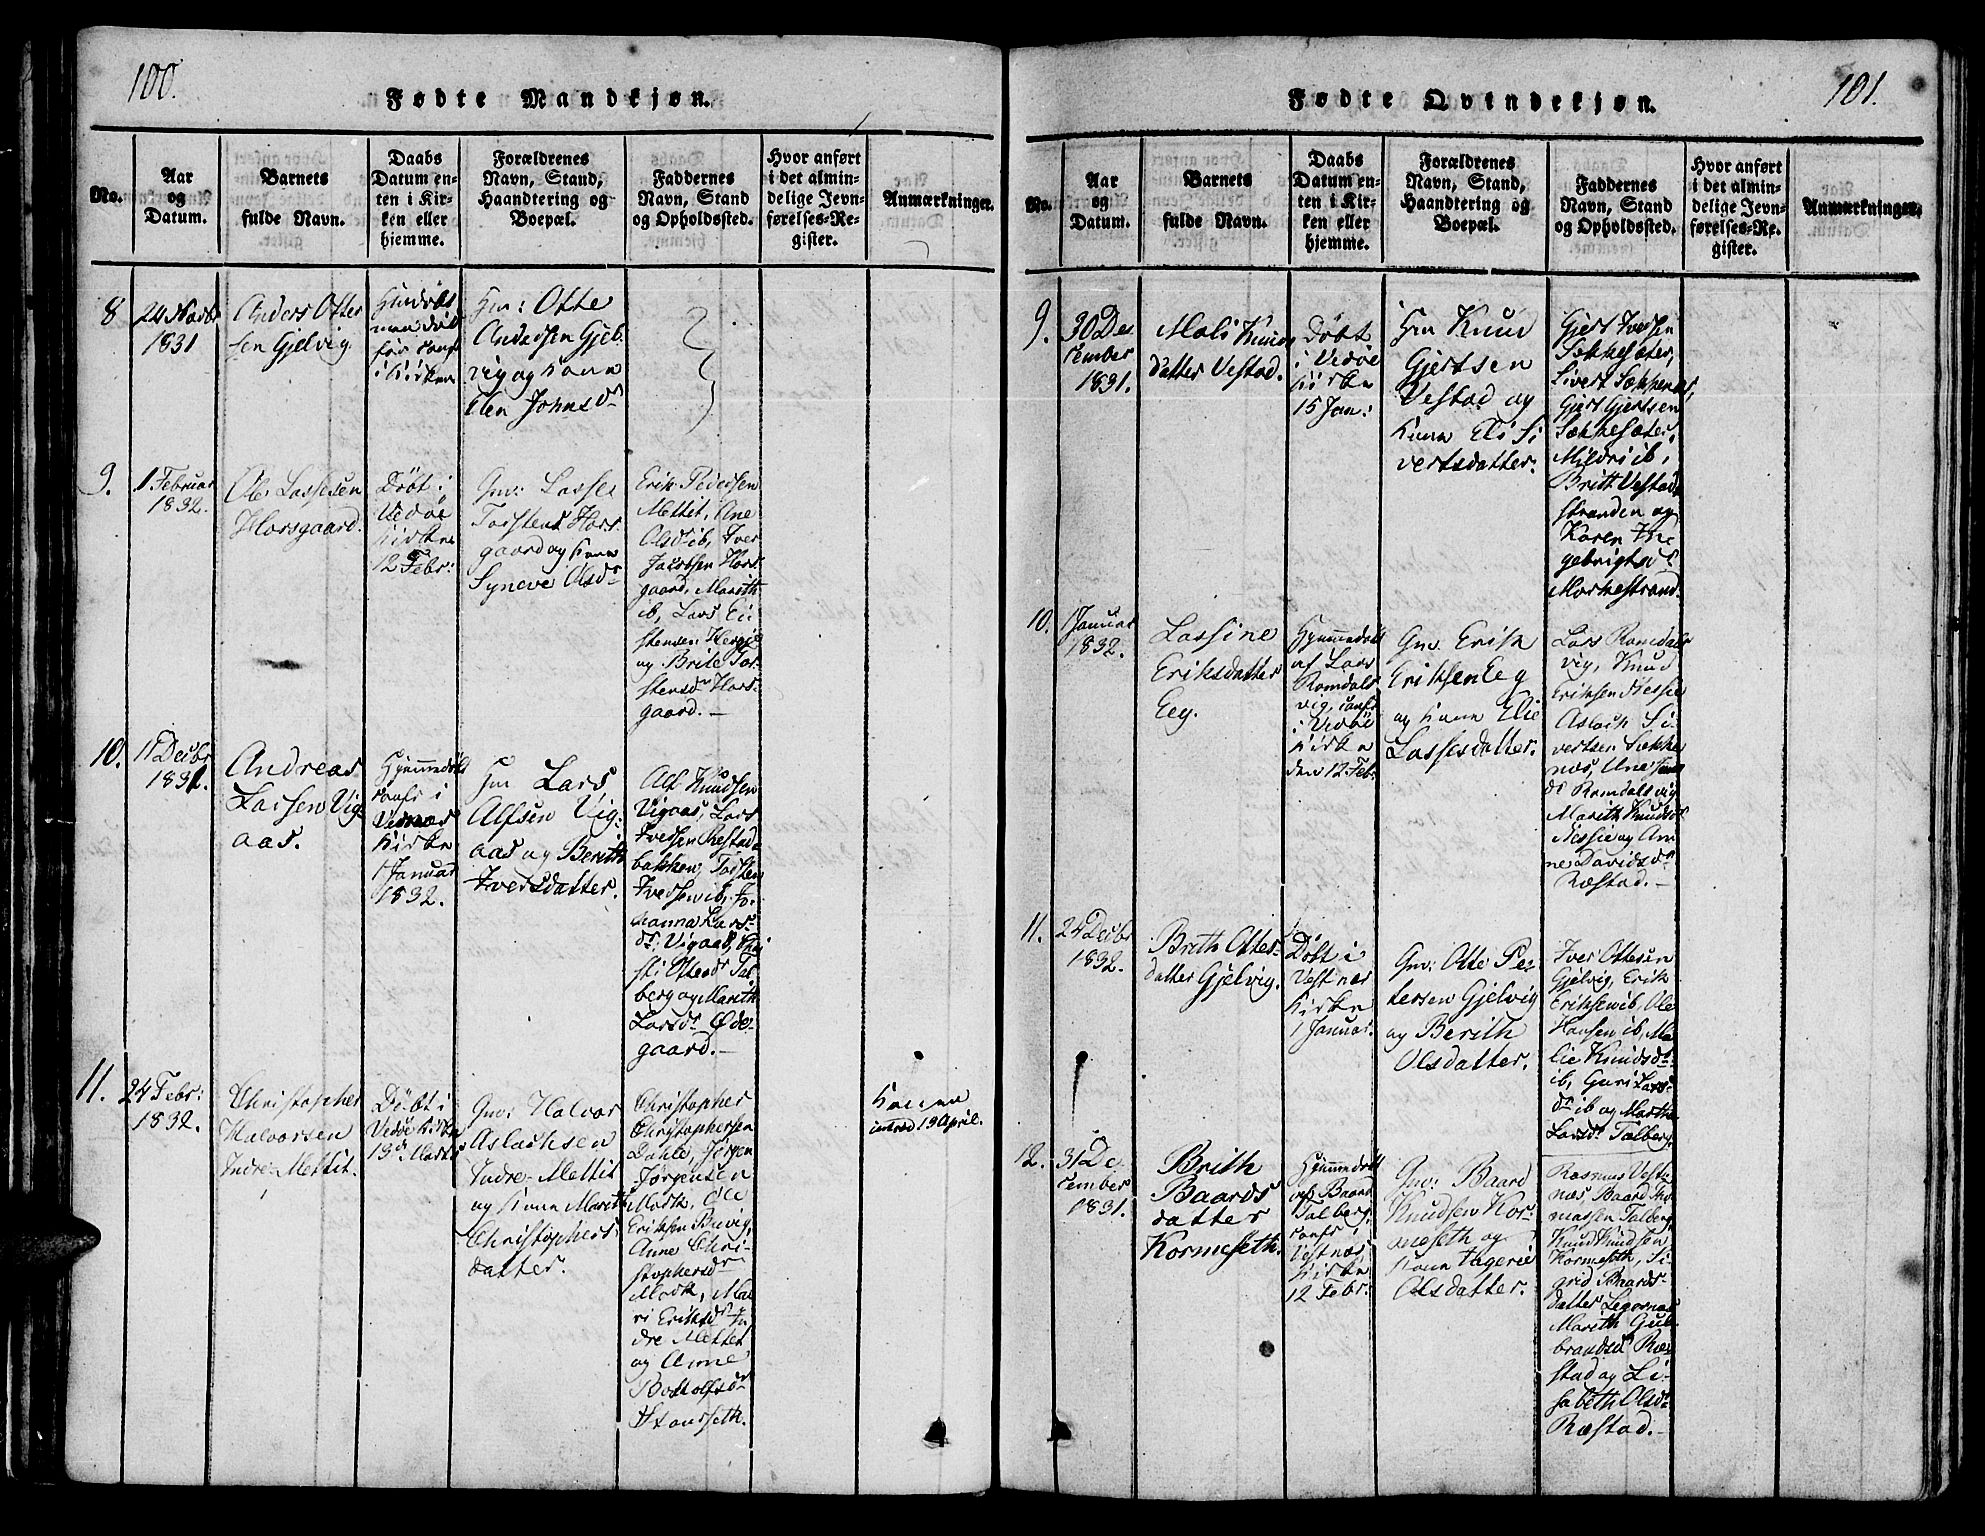 100.
Fødte Mandkjøn.
No.
Aar
og
Datum.
Barnets
fulde Navn.
Daabs
Datum en-
ten i Kir-
ken eller
hjemme.
Forældrenes
Navn, Stand,
Haandtering og
Boepæl.
Faddernes
Navn, Stand
og Opholdssted.
Hvor anført
i det almin-
delige Jevn-
førelses-Re-
gister.
Anmærkninger.
8
24 Novbr
1831
Anders Otter
sen Gjelvig
i Kirken
Gm: Otte
Andersen Gjel
vig og Kone
Johnsdr
9.
1 Februar
1832.
Ole Lassesen
Horsgaard.
Døbt i
Vedøe
Kirke
12 Febr:
Gm: Lasse
Torstens Hors
gaard og Kone
Syneve Olsdr
Erik Pedersen
Mettit, Ane
Olsd ib, Iver
Jacobsen Hors
gaard, Marith
ib, Lars Ei
stensen
og Brite Tor
stensdr Hors
gaard. –
10.
11 Decbr
1831.
Andreas
Larsen Vig
aas.
Hjemmedøbt
i
Kirke
1 Januar
1832.
Gm Lars
Alfsen Vig:
aas og Berith
Iversdatter.
Alf Knudsen
Vigaas, Lars
Iversen Restad
bakken, Torsten
Iversen ib, Jo
hanna Lars
dr Vigaas,
sti Ottesdr Tal
berg og Marith
Larsdr Øde-
gaard. –
11.
24 Febr:
1832.
Christopher
Halvorsen
Indre-Mettit.
Døbt i
Vedøe Kirke
13d Marts
Gm: Halvor
Aslachsen
Indre-Mettit
og Kone Marith
Christophers
datter.
Christopher
Christophersen
Dahle, Jørgen
Jørgensen
Mork, Ole
Eriksen Buvig,
Anne Chri-
stophersdr
Mork, Mal
ri Eriksdr In
dre Mettet
og Anne
Botolfsdr
Stourseth.
Konen
introd 19 April.
101.
Fødte Qvindekjøn.
No.
Aar
og
Datum.
Barnets
fulde Navn.
Daabs
Datum en-
ten i Kir-
ken eller
hjemme.
Forældrenes
Navn, Stand,
Haandtering og
Boepæl.
Faddernes
Navn, Stand
og Opholdssted.
Hvor anført
i det almin-
delige Jevn-
førelses-Re-
gister.
Anmærkninger.
9.
30 De
cember
1831.
Mali Knuds
datter Vestad.
Døbt
i Vedøe
Kirke
15 Jan:
Gm Knud
Gjertsen
Vestad og
Kone Eli Si
vertsdatter.
Gjert Iversen
Sekkesæter,
Sivert Sekkenes,
Gjert Gjertsen
Sekkesæter,
Mildri ib,
Brith Vestad
stranden og
Karen In
gebrigtsdr
Morkestrand.
10.
1 Januar
1832.
Lassine
Eriksdatter
Eeg.
Hjemmedøbt
af Lars
Romdals
vig, conf.
i Vedøe
Kirke
den 12 Feb.
Gm. Erik
Eriksen Eeg
og Kone Elie
Lassesdatter.
Lars Romdals
vig, Knud
Eriksen Nessie
Aslach Si-
vertsen Sekke
nes, Ane
dr Romdalsvig
Marith Knudsdr
Nessie og An
ne Davidsdr
Ræstad. –
11.
24 Decbr
1832.
Brith Ottes-
datter Gjelvig.
Døbt i
Vestnæs
Kirke
1 Januar.
Gm: Otte Pe-
tersen Gjelvig
og Berith
Olsdatter.
Iver Ottesen
Gjelvig, Erik
Eriksen ib, Ole
Hansen ib, Ma
lie Knudsdr
ib, Guri Lars
dr ib og Marthe
Larsdr Talberg
12.
31 De
cember
1831.
Brith
Baards
datter
Kormeseth.
Hjemmedøbt
af Baard
Talberg,
conf. i
Vestnæs
Kirke
12 Febr.
Gm: Baard
Knudsen Kor-
meseth og
Kone Ingerie
Olsdatter.
Rasmus Vest
næs, Baard Tho
massen Talberg,
Knud Knudsen
Kormeseth, Si
grid Baards
datter
Marith Gul
brandsd Ræ
stad og Li-
sabeth Olsdr
Ræstad. –